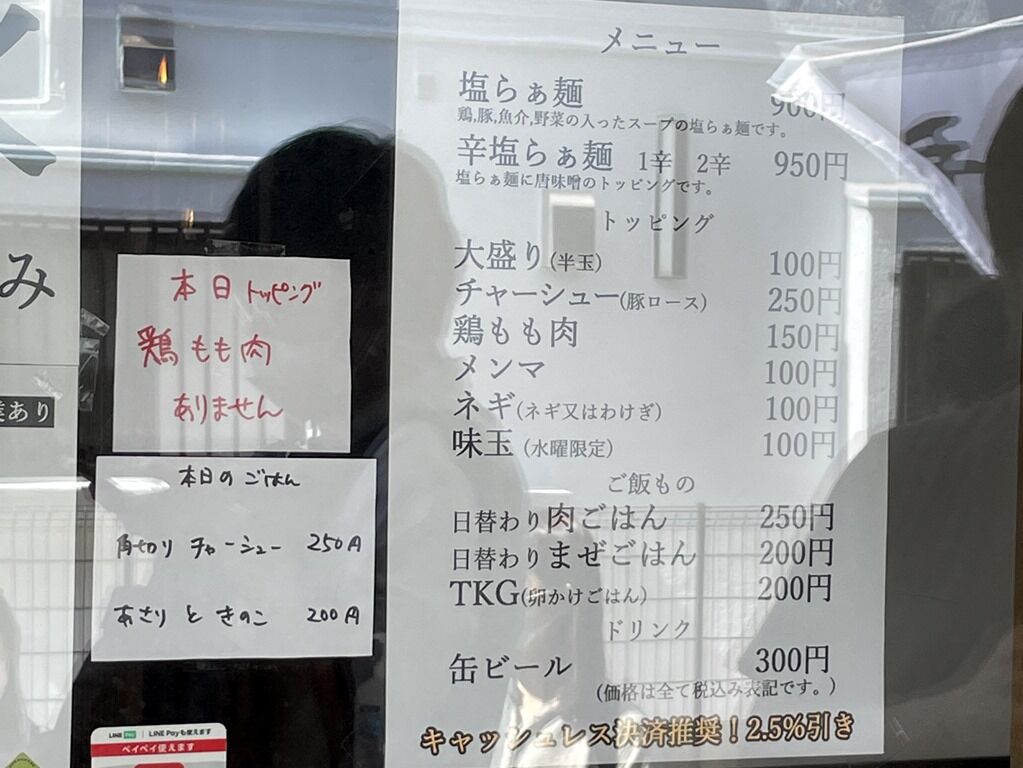 み
ありました
メニュー
塩らぁ麺 900円
鶏,豚,魚介,野菜の入ったスープの塩らぁ麺です。
辛塩らぁ麺 1辛 2辛 950円
塩らぁ麺に唐味噌のトッピングです。
トッピング
大盛り(半玉) 100円
チャーシュー(豚ロース) 250円
鶏もも肉 150円
メンマ 100円
ネギ(ネギ又はわけぎ) 100円
味玉(水曜限定) 100円
ご飯もの
日替わり肉ごはん 250円
日替わりまぜごはん 200円
TKG(卵かけごはん) 200円
ドリンク
缶ビール 300円
(価格は全て税込み表記です。)
キャッシュレス決済推奨!2.5%引き
本日トッピング
鶏もも肉
ありません
本日のごはん
角切りチャーシュー 250円
あさりときのこ 200円
LINE Pay LINE Payも使えます
ペイペイ使えます